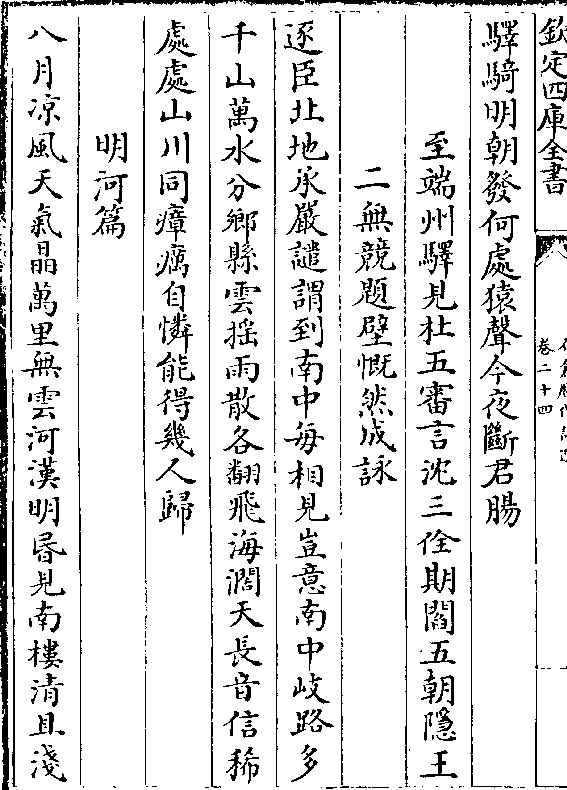 欽定四庫全書
卷二十四
驛騎明朝發何處猿聲今夜斷君腸
至端州驛見杜五審言沈三佺期閻五朝隱王
二無競題壁慨然成詠
逐臣北地承嚴譴謂到南中每相見豈意南中岐路多
千山萬水分鄉縣雲揺雨散各翻飛海濶天長音信稀
處處山川同瘴癘自憐能得幾人歸
明河篇
八月凉風天氣晶萬里無雲河漢明昏見南樓清且淺